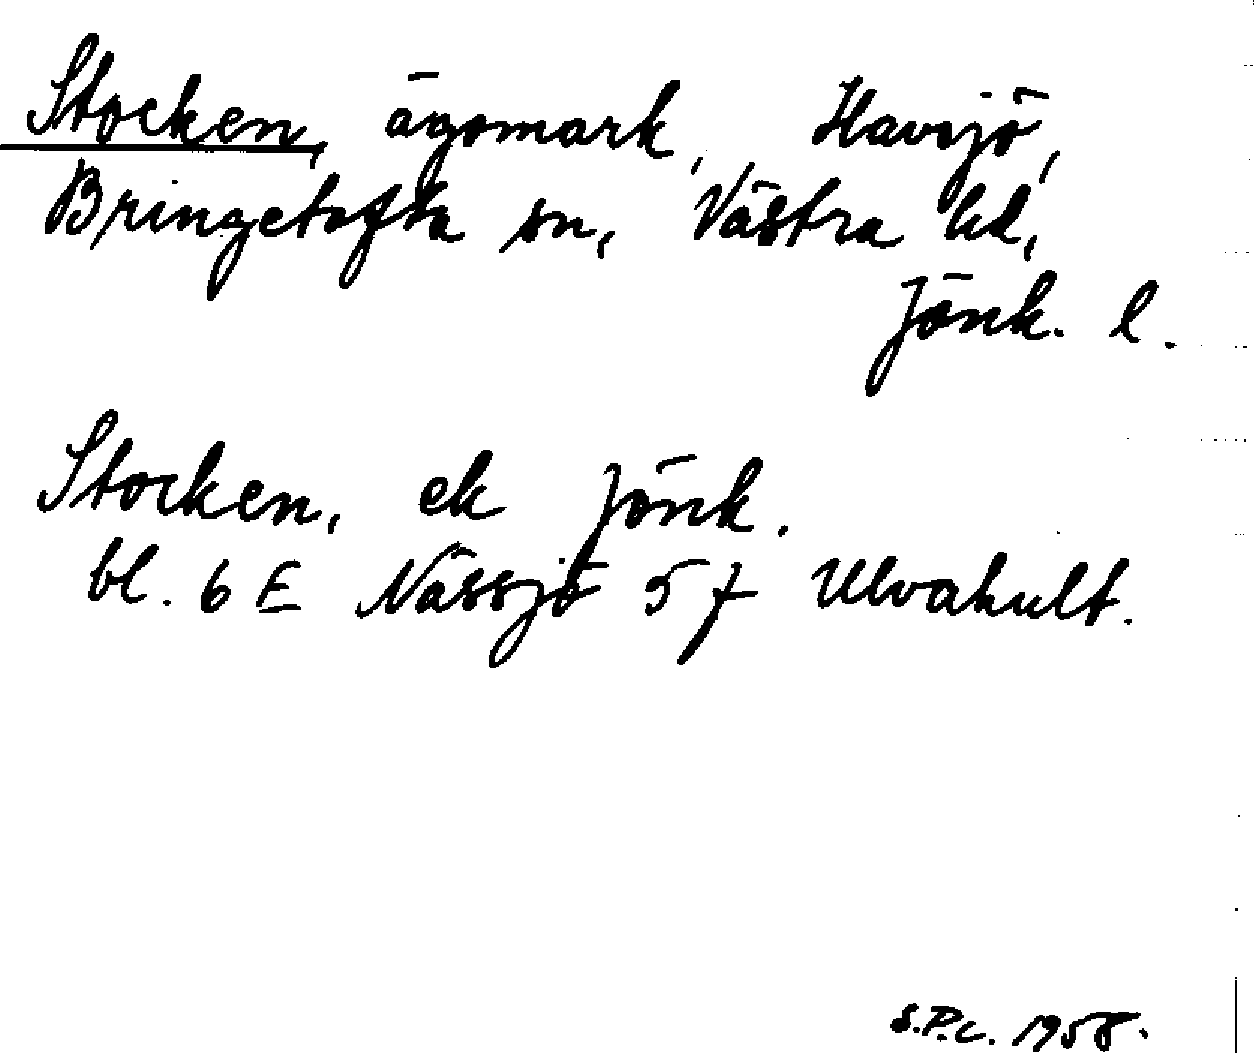 Stocken, ägomark, Havsjö,
Bringetofta sn, Västra hd,
Jönk. l.
Stocken, ek Jönk.
bl. 6 E Nässjö 5 f Ulvahult.
S.P.C. 1958.